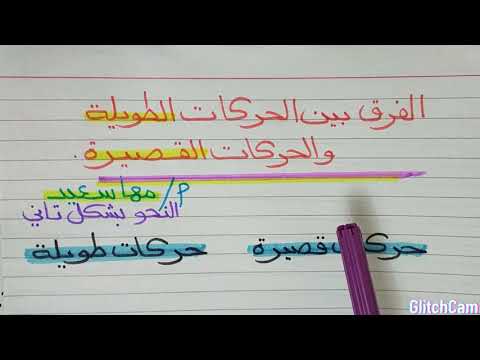 الفرق بين الحركات الطويلة
والحركات القصيرة.
م/ مها سعيد
النحو بشكل تاني
حركات قصيرة
حركات طويلة
GlitchCam